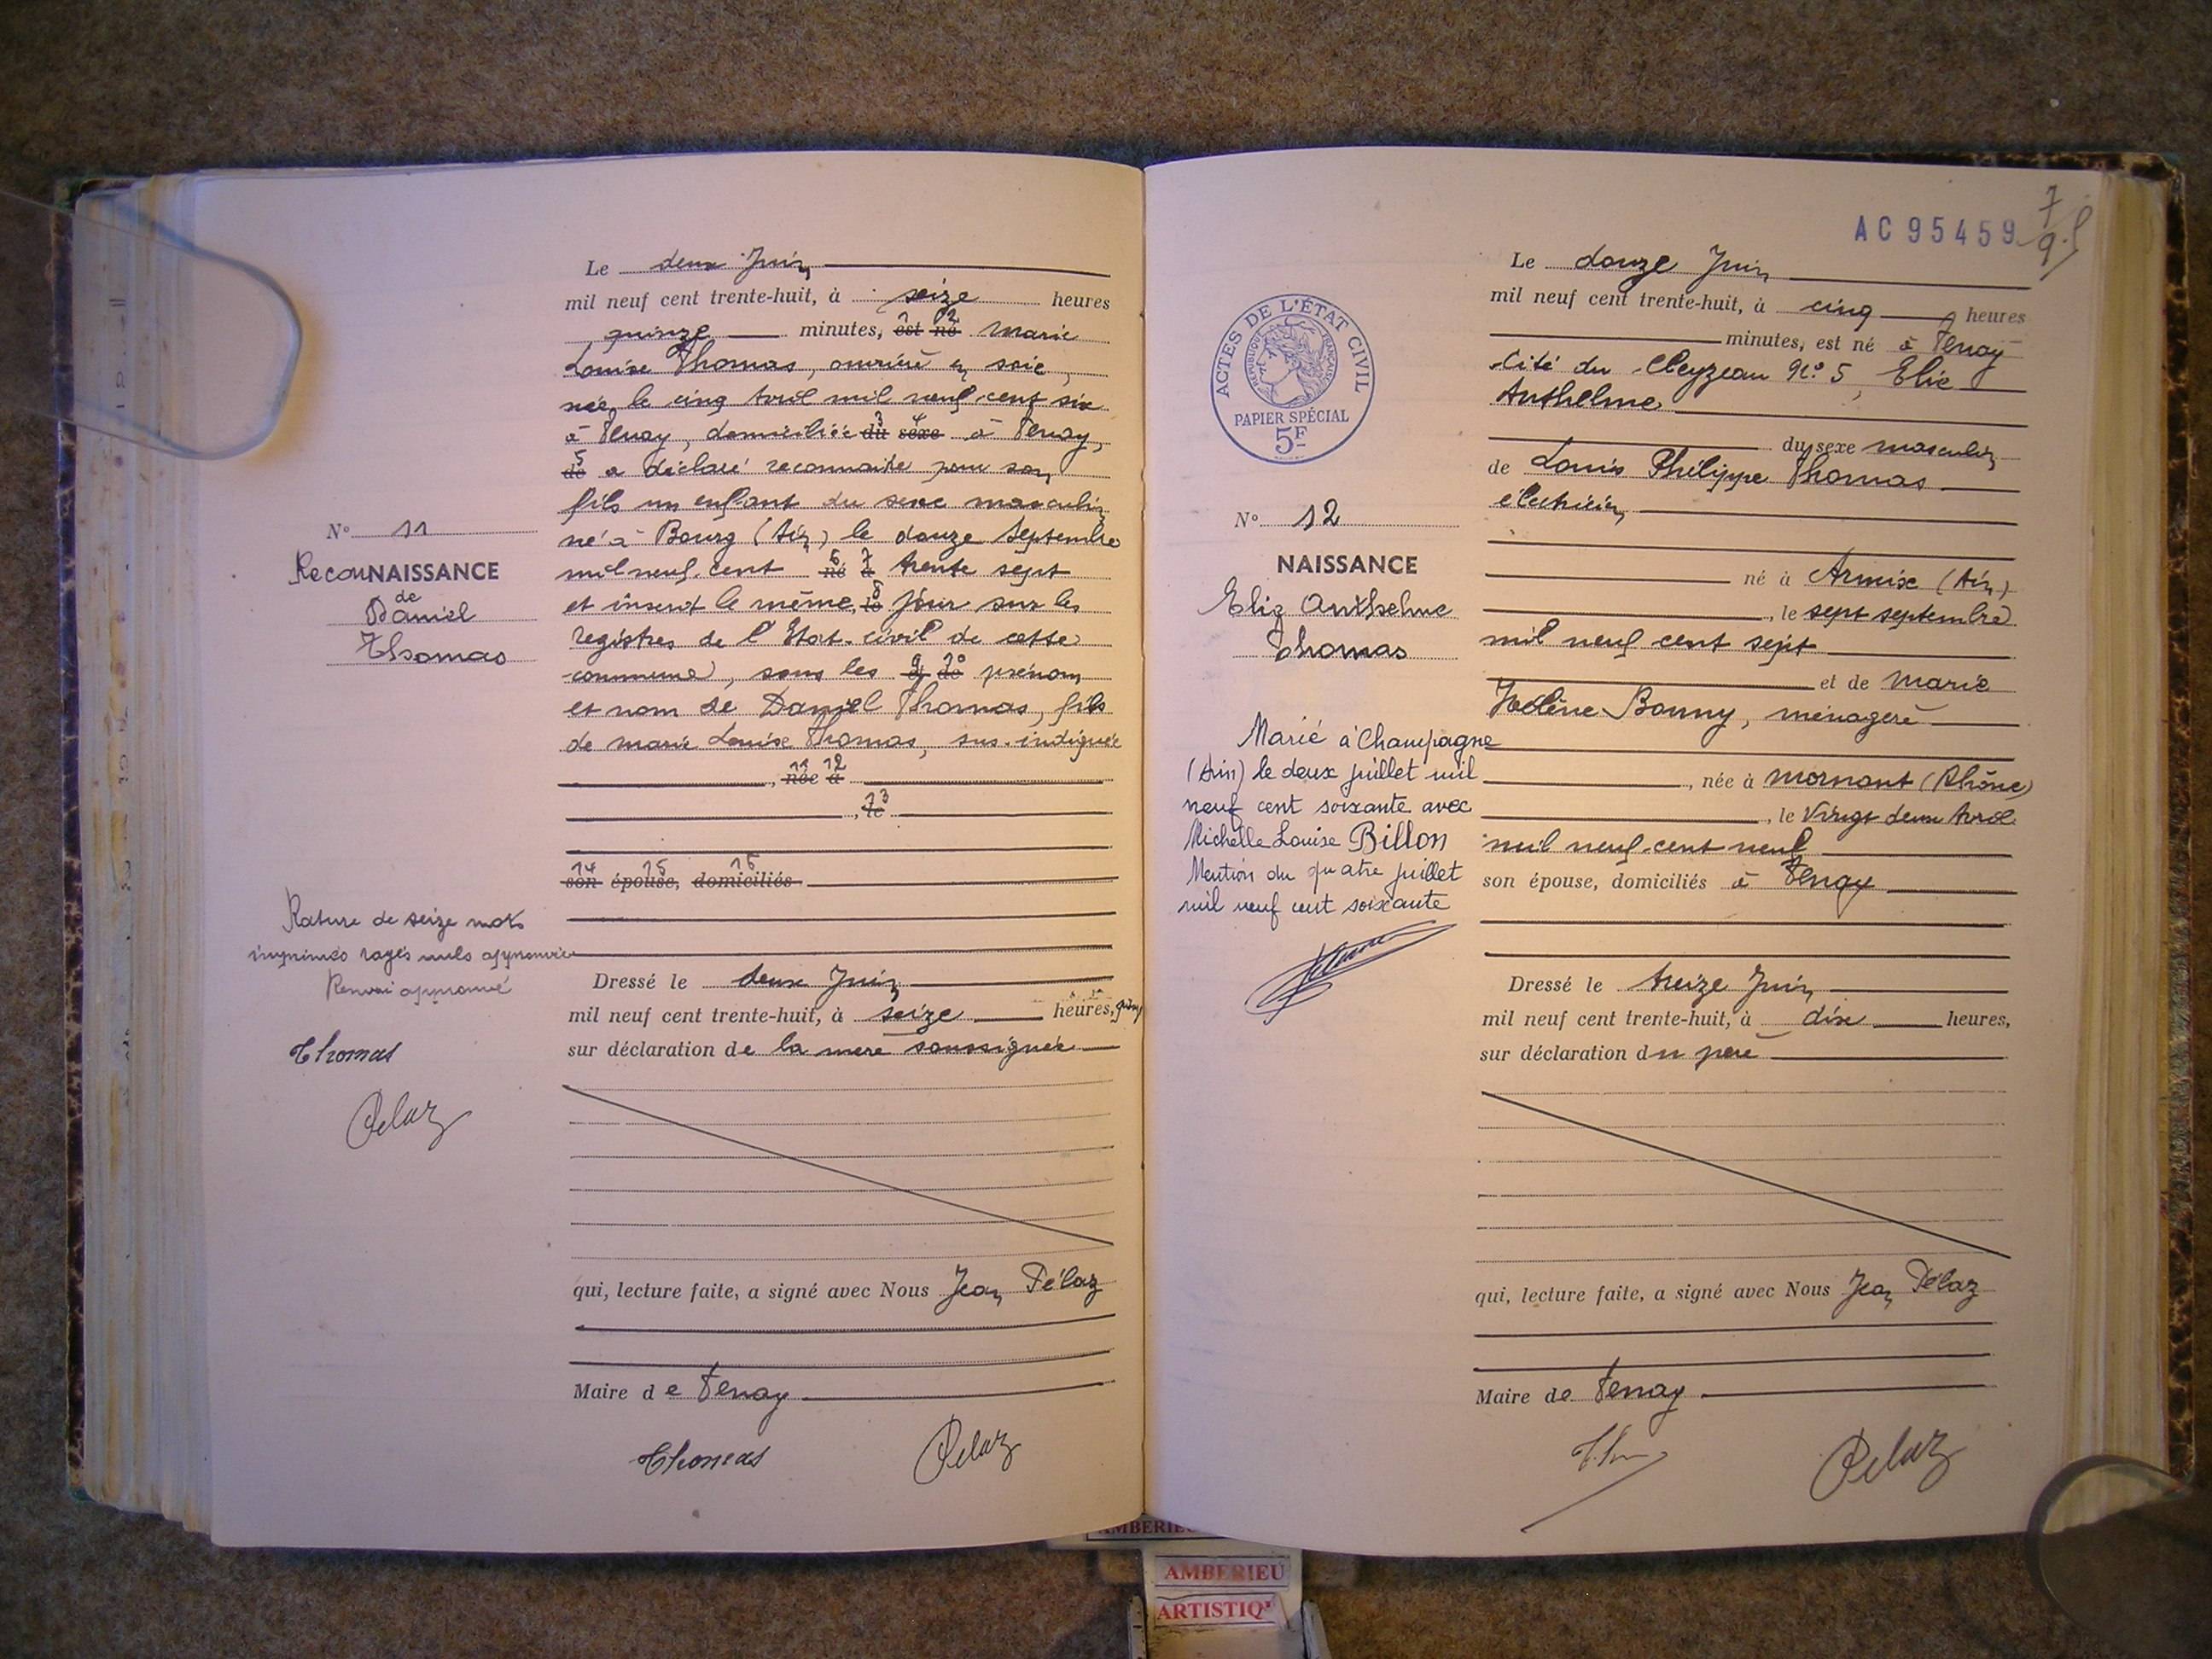 Le deux Juin
mil neuf cent trente-huit, à seize heures
quinze minutes, est né Marie
Louise Thomas, ouvrière en soie,
née le cinq Avril mil neuf cent six
à Tenay, domiciliée du sexe à Tenay,
de a déclaré reconnaitre pour son
fils un enfant du sexe masculin
né à Bourg (Ain) le douze Septembre
mil neuf cent né à trente sept
et inscrit le même le jour sur les
registres de l'Etat-civil de cette
commune, sous les et de prénom
et nom de Daniel Thomas, fils
de Marie Louise Thomas, sus-indiquée
, née à
, le
son épouse, domiciliés
Dressé le deux Juin
mil neuf cent trente-huit, à seize heures, quinze
sur déclaration de la mère soussignée
qui, lecture faite, a signé avec Nous Jean Pélaz
Maire de Tenay
Thomas Pelaz
N° 11
ReconNAISSANCE
de
Daniel
Thomas
Rature de seize mots
imprimés rayés nuls approuvée
Renvoi approuvé
Thomas
Pelaz
AC 95459
7
9
ACTES DE L'ÉTAT CIVIL
RÉPUBLIQUE FRANÇAISE
PAPIER SPÉCIAL
5F
N° 12
NAISSANCE
Elie Anthelme
Thomas
Marié à Champagne
(Ain) le deux juillet mil
neuf cent soixante avec
Michelle Louise Billon
Mention du quatre juillet
mil neuf cent soixante
Le douze Juin
mil neuf cent trente-huit, à cinq heures
minutes, est né à Tenay
Cité du Cleyzeau N° 5, Elie
Anthelme
du sexe masculin
de Louis Philippe Thomas
électricien
né à Armix (Ain)
, le sept septembre
mil neuf cent sept
et de Marie
Hélène Bonny, ménagère
, née à Mornant (Rhône)
, le Vingt deux Avril
mil neuf cent neuf
son épouse, domiciliés à Tenay
Dressé le treize Juin
mil neuf cent trente-huit, à dix heures,
sur déclaration du père
qui, lecture faite, a signé avec Nous Jean Pélaz
Maire de Tenay
Pelaz
AMBERIEU
AMBERIEU
ARTISTIQ